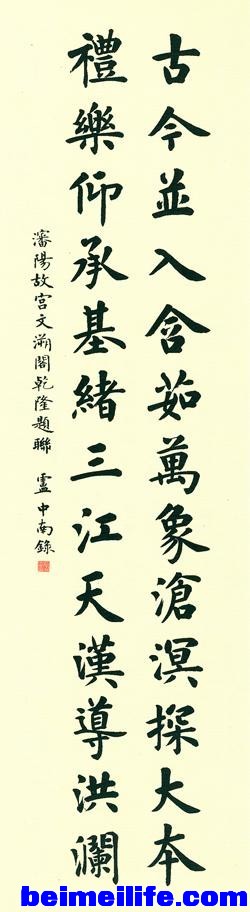 古今並入含茹萬象滄溟探大本
禮樂仰承基緒三江天漢導洪瀾
瀋陽故宮文溯閣乾隆題聯 盧中南錄
beimeilife.com